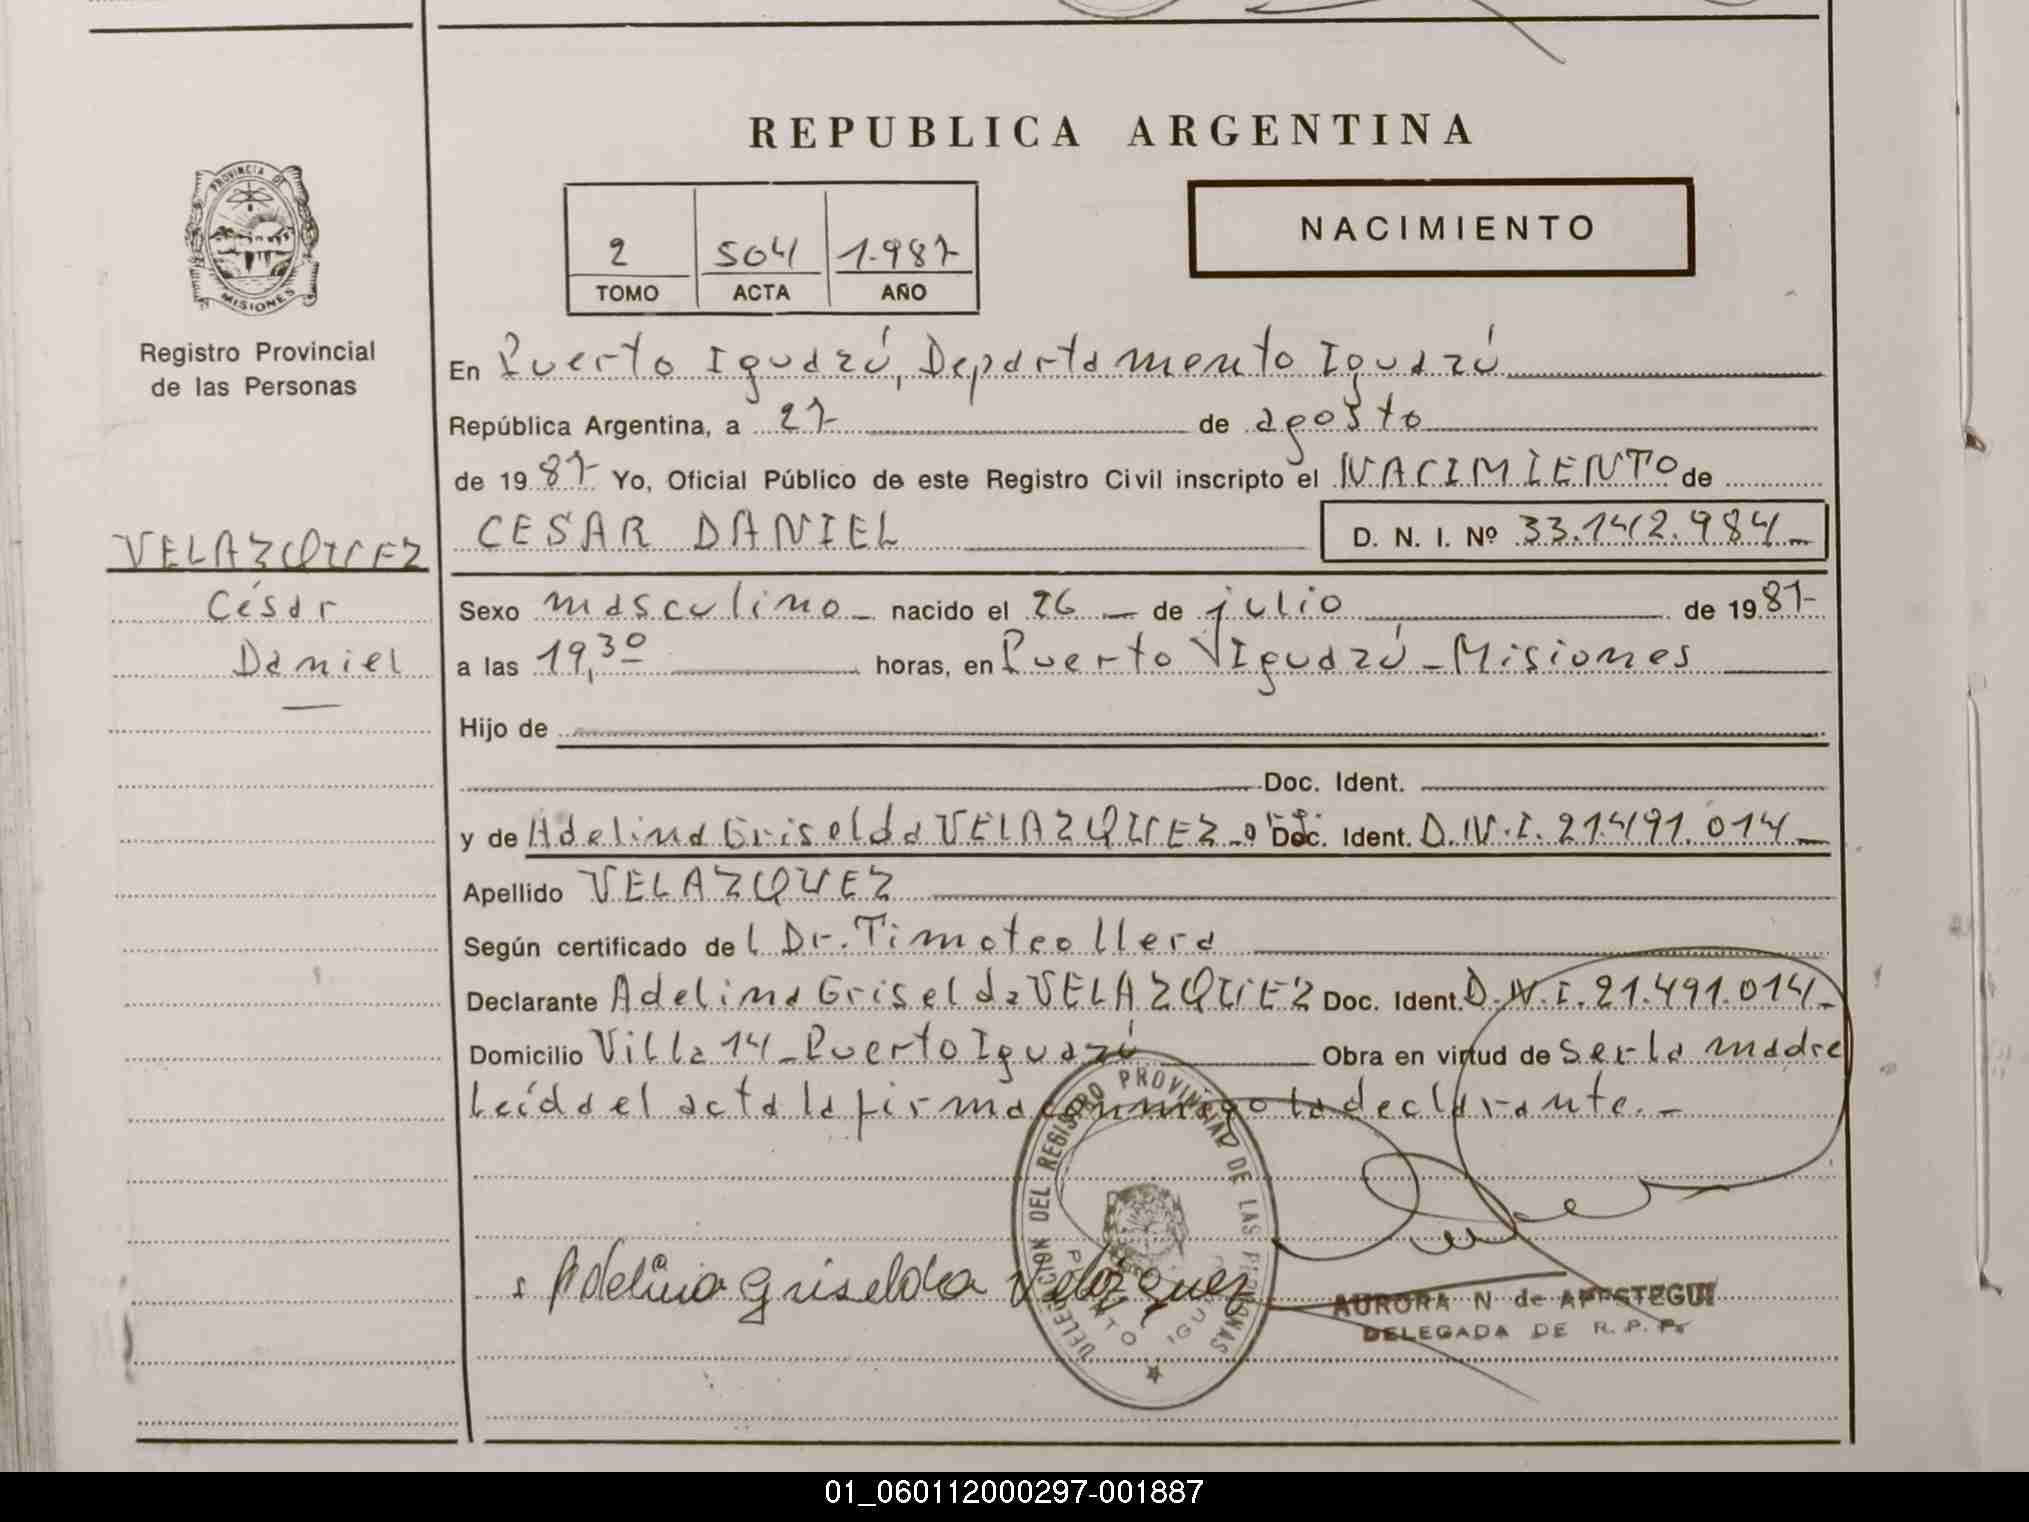 REPUBLICA ARGENTINA
PROVINCIA DE
MISIONES
Registro Provincial
de las Personas
2 504 1.987
TOMO ACTA AÑO
NACIMIENTO
En Puerto Iguazú, Departamento Iguazú
República Argentina, a 27 de agosto
de 1987 Yo, Oficial Público de este Registro Civil inscripto el NACIMIENTO de
CESAR DANIEL D. N. I. Nº 33.142.984_
VELAZQUEZ
César
Daniel
Sexo masculino_ nacido el 26 _ de julio de 1987
a las 19,30 horas, en Puerto Iguazú_Misiones
Hijo de
Doc. Ident.
y de Adelina Griselda VELAZQUEZ_ Doc. Ident. D.N.I.21.491.014_
Apellido VELAZQUEZ
Según certificado del Dr. Timoteo Llera
Declarante Adelina Griselda VELAZQUEZ Doc. Ident. D.N.I.21.491.014_
Domicilio Villa 14_Puerto Iguazú Obra en virtud de ser la madre
Leída el acta la firma conmigo la declarante._
DELEGACION DEL REGISTRO PROVINCIAL DE LAS PERSONAS
Adelina Griselda Velazquez
AURORA N de APESTEGUI
DELEGADA DE R.P.P.
01_060112000297-001887